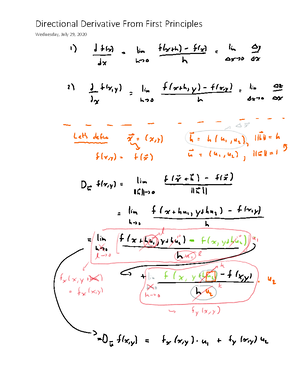 Directional Derivative From First Principles
Wednesday, July 29, 2020
1) d f(x) / dx = lim h→0 f(x+h) - f(x) / h = lim Δx→0 Δy / Δx
2) ∂ f(x,y) / ∂x = lim h→0 f(x+h, y) - f(x,y) / h = lim Δx→0 Δz / Δx
Let's define x⃗ = (x,y) h⃗ = h(u₁,u₂), ||h⃗|| = h
f(x,y) = f(x⃗) u⃗ = (u₁,u₂), ||u⃗|| = 1
D_u⃗ f(x,y) = lim ||h⃗||→0 f(x⃗ + h⃗) - f(x⃗) / ||h⃗||
= lim h→0 f(x+hu₁, y+hu₂) - f(x,y) / h
= lim h→0 f(x+hu₁, y+hu₂) - f(x, y+hu₂) / hu₁ · u₁
+ lim h→0 f(x, y+hu₂) - f(x,y) / hu₂ · u₂
= f_x(x,y)
→ f_y(x,y)
D_u⃗ f(x,y) = f_x(x,y) · u₁ + f_y(x,y) u₂